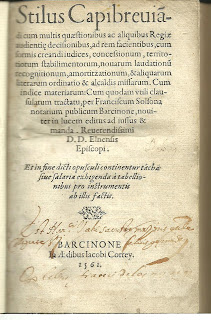 Stilus Capibreuiã-
di cum multis quæstionibus ac aliquibus Regiæ
audientiæ decisionibus, ad rem facientibus, cum
formis creandi iudices, concessionum, termi-
norum stabilimentorum, nouarum laudationũ
recognitionum, amortizationum, & aliquarum
literarum ordinario & alcaldis missarum. Cum
indice materiarum: Cum quodam vtili clau-
sularum tractatu, per Franciscum Solsona
notarium publicum Barcinone, nou-
iter in lucem editus ad iussus &
manda. Reuerendissimi
D. D. Elnensis
Episcopi.
Et in fine dicti opusculi continentur tàchæ
siue salaria exhigenda à tabellio-
nibus pro instrumentis
ab illis factis.
BARCINONE
In Ædibus Iacobi Cortey.
1561.